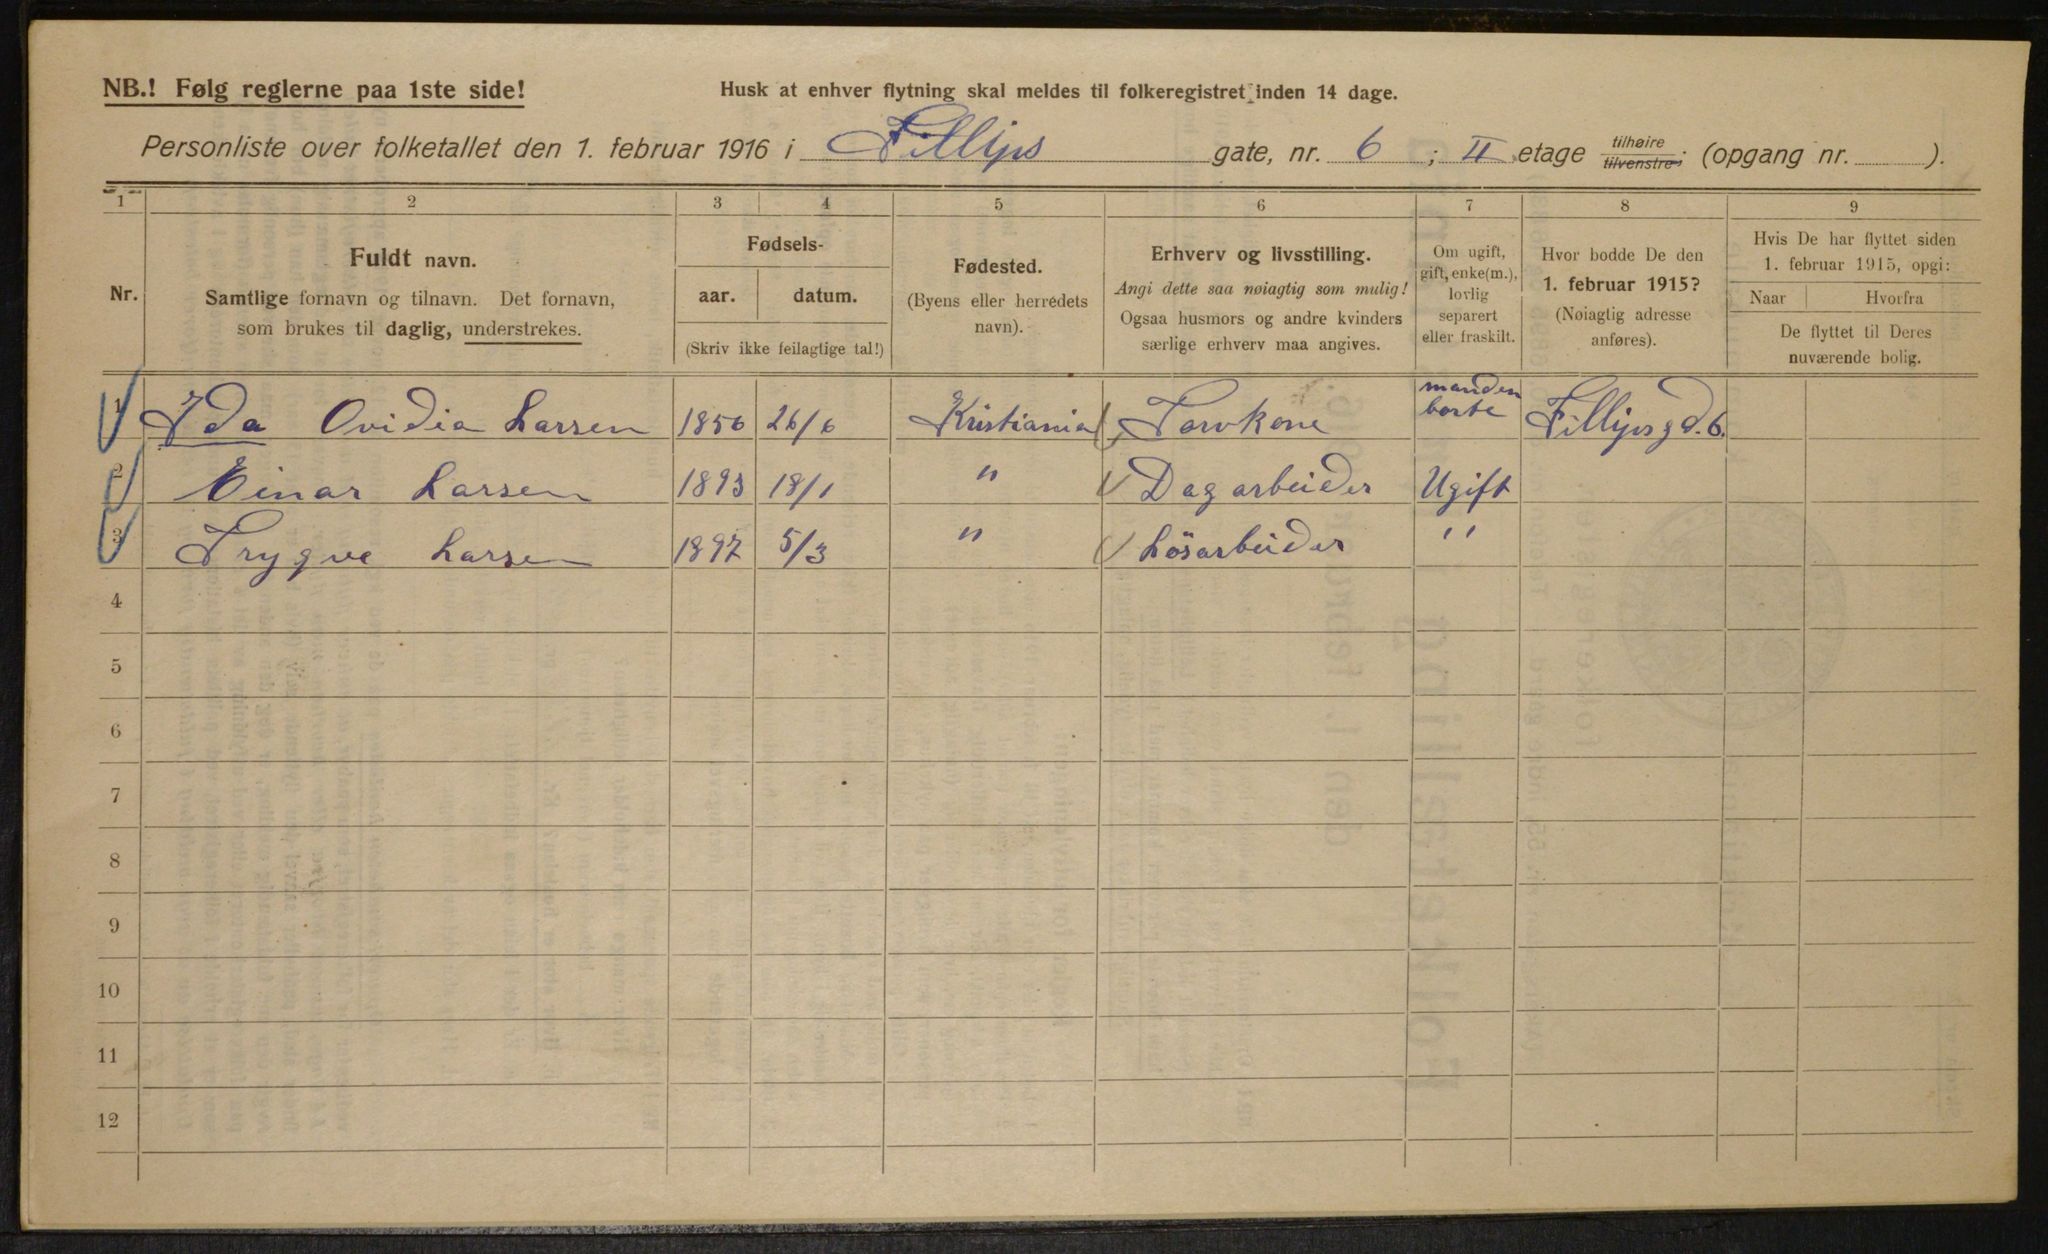 NB.! Følg reglerne paa 1ste side!
Husk at enhver flytning skal meldes til folkeregistret inden 14 dage.
Personliste over folketallet den 1. februar 1916 i Fillips gate, nr. 6 ; II etage tilhøire tilvenstre; (opgang nr. ).
1 2 3 4 5 6 7 8 9
Nr.
Fuldt navn.
Samtlige fornavn og tilnavn. Det fornavn,
som brukes til daglig, understrekes.
Fødsels-
aar. datum.
(Skriv ikke feilagtige tal!)
Fødested.
(Byens eller herredets
navn).
Erhverv og livsstilling.
Angi dette saa nøiagtig som mulig!
Ogsaa husmors og andre kvinders
særlige erhverv maa angives.
Om ugift,
gift, enke(m.),
lovlig
separert
eller fraskilt.
Hvor bodde De den
1. februar 1915?
(Nøiagtig adresse
anføres).
Hvis De har flyttet siden
1. februar 1915, opgi:
Naar Hvorfra
De flyttet til Deres
nuværende bolig.
1 Ida Ovidia Larsen 1856 26/6 Kristiania Torvkone manden borte Fillipsgd. 6.
2 Einar Larsen 1893 18/1 " Dagarbeider Ugift
3 Trygve Larsen 1897 5/3 " Løsarbeider "
4
5
6
7
8
9
10
11
12